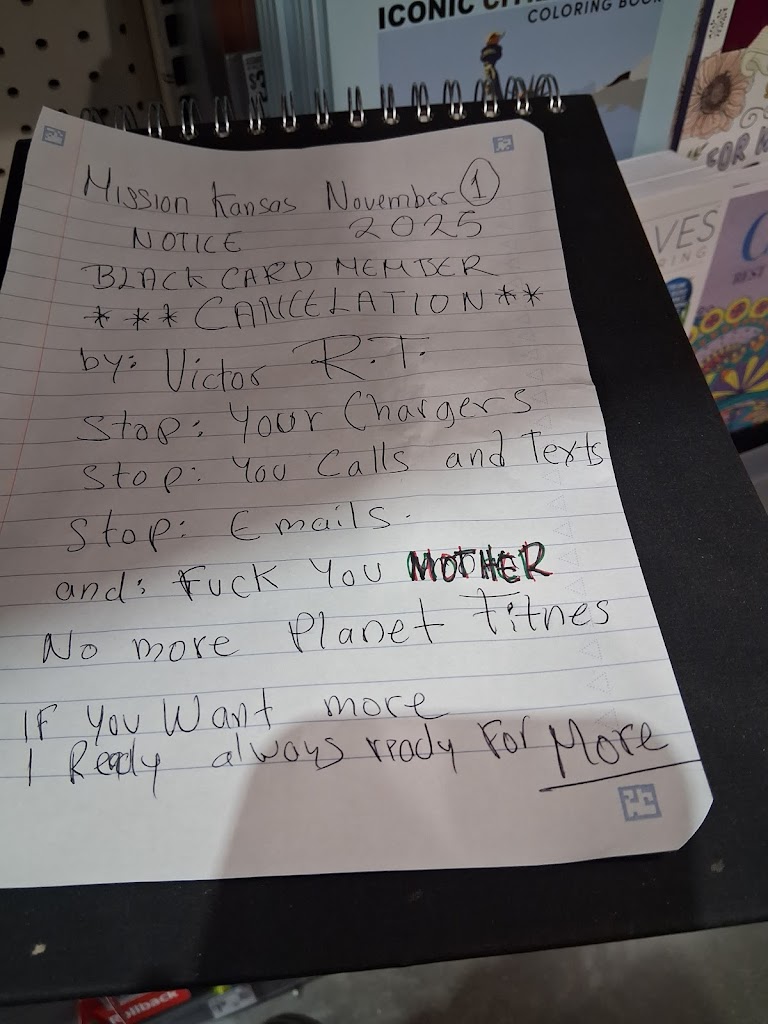 ICONIC CITIE
COLORING BOOK
Mission Kansas November 1
NOTICE 2025
BLACK CARD MEMBER
*** CANCELATION **
by: Victor R.T.
Stop: Your Chargers
Stop: You Calls and Texts
Stop: Emails.
and: Fuck You MOTHER
No more Planet Fitnes
IF You Want more
I Ready always ready For More
FOR
VES
RING
Rollback